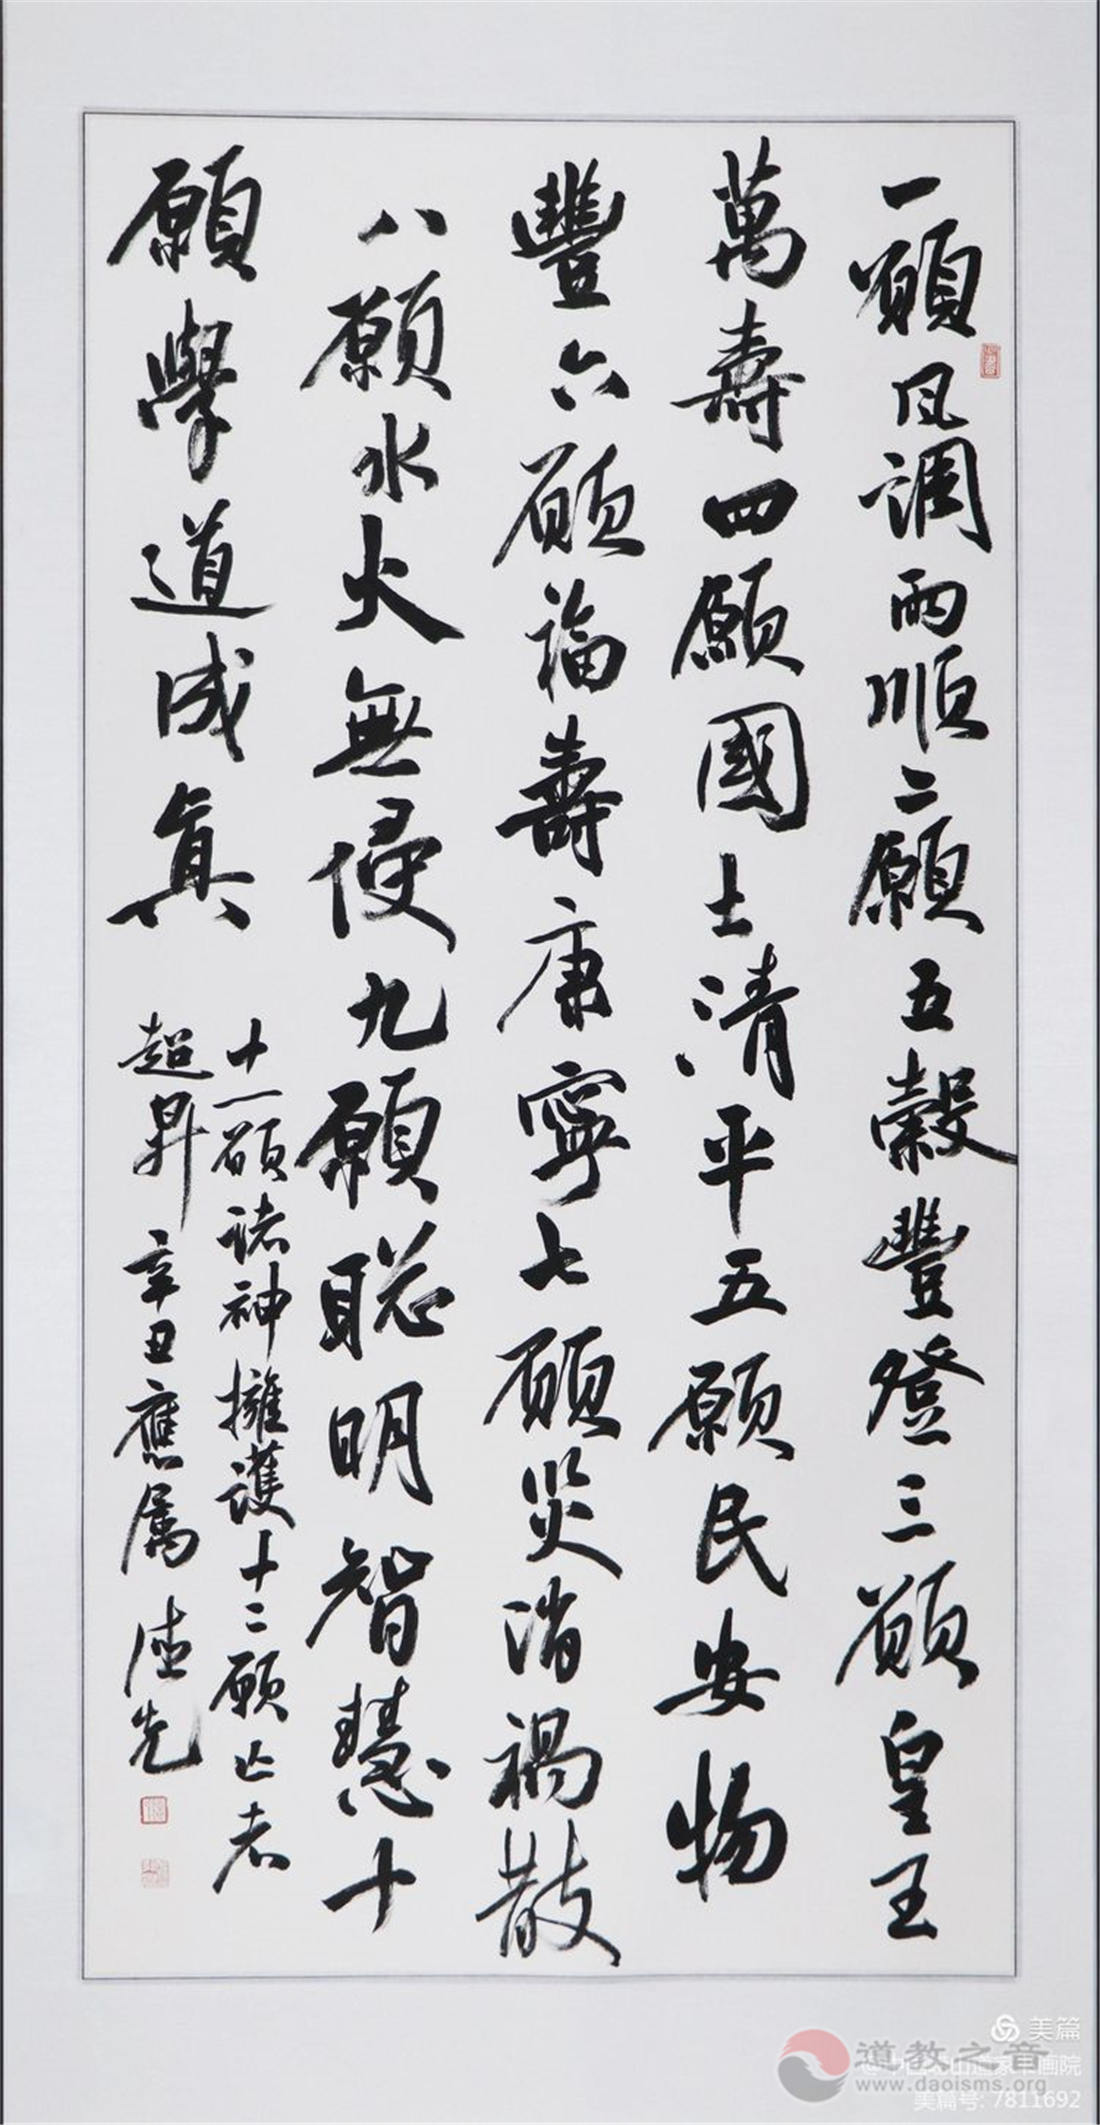 一願风调雨順二願五穀豐登三願皇王
萬壽四願國土清平五願民安物
豐六願福壽康寧七願災消禍散
八願水火無侵九願聪明智慧十
願學道成真
十一願諸神擁護十二願亡者
超昇 辛丑應属 德先
美篇
道教之音
www.daoisms.org
美篇号: 7811692